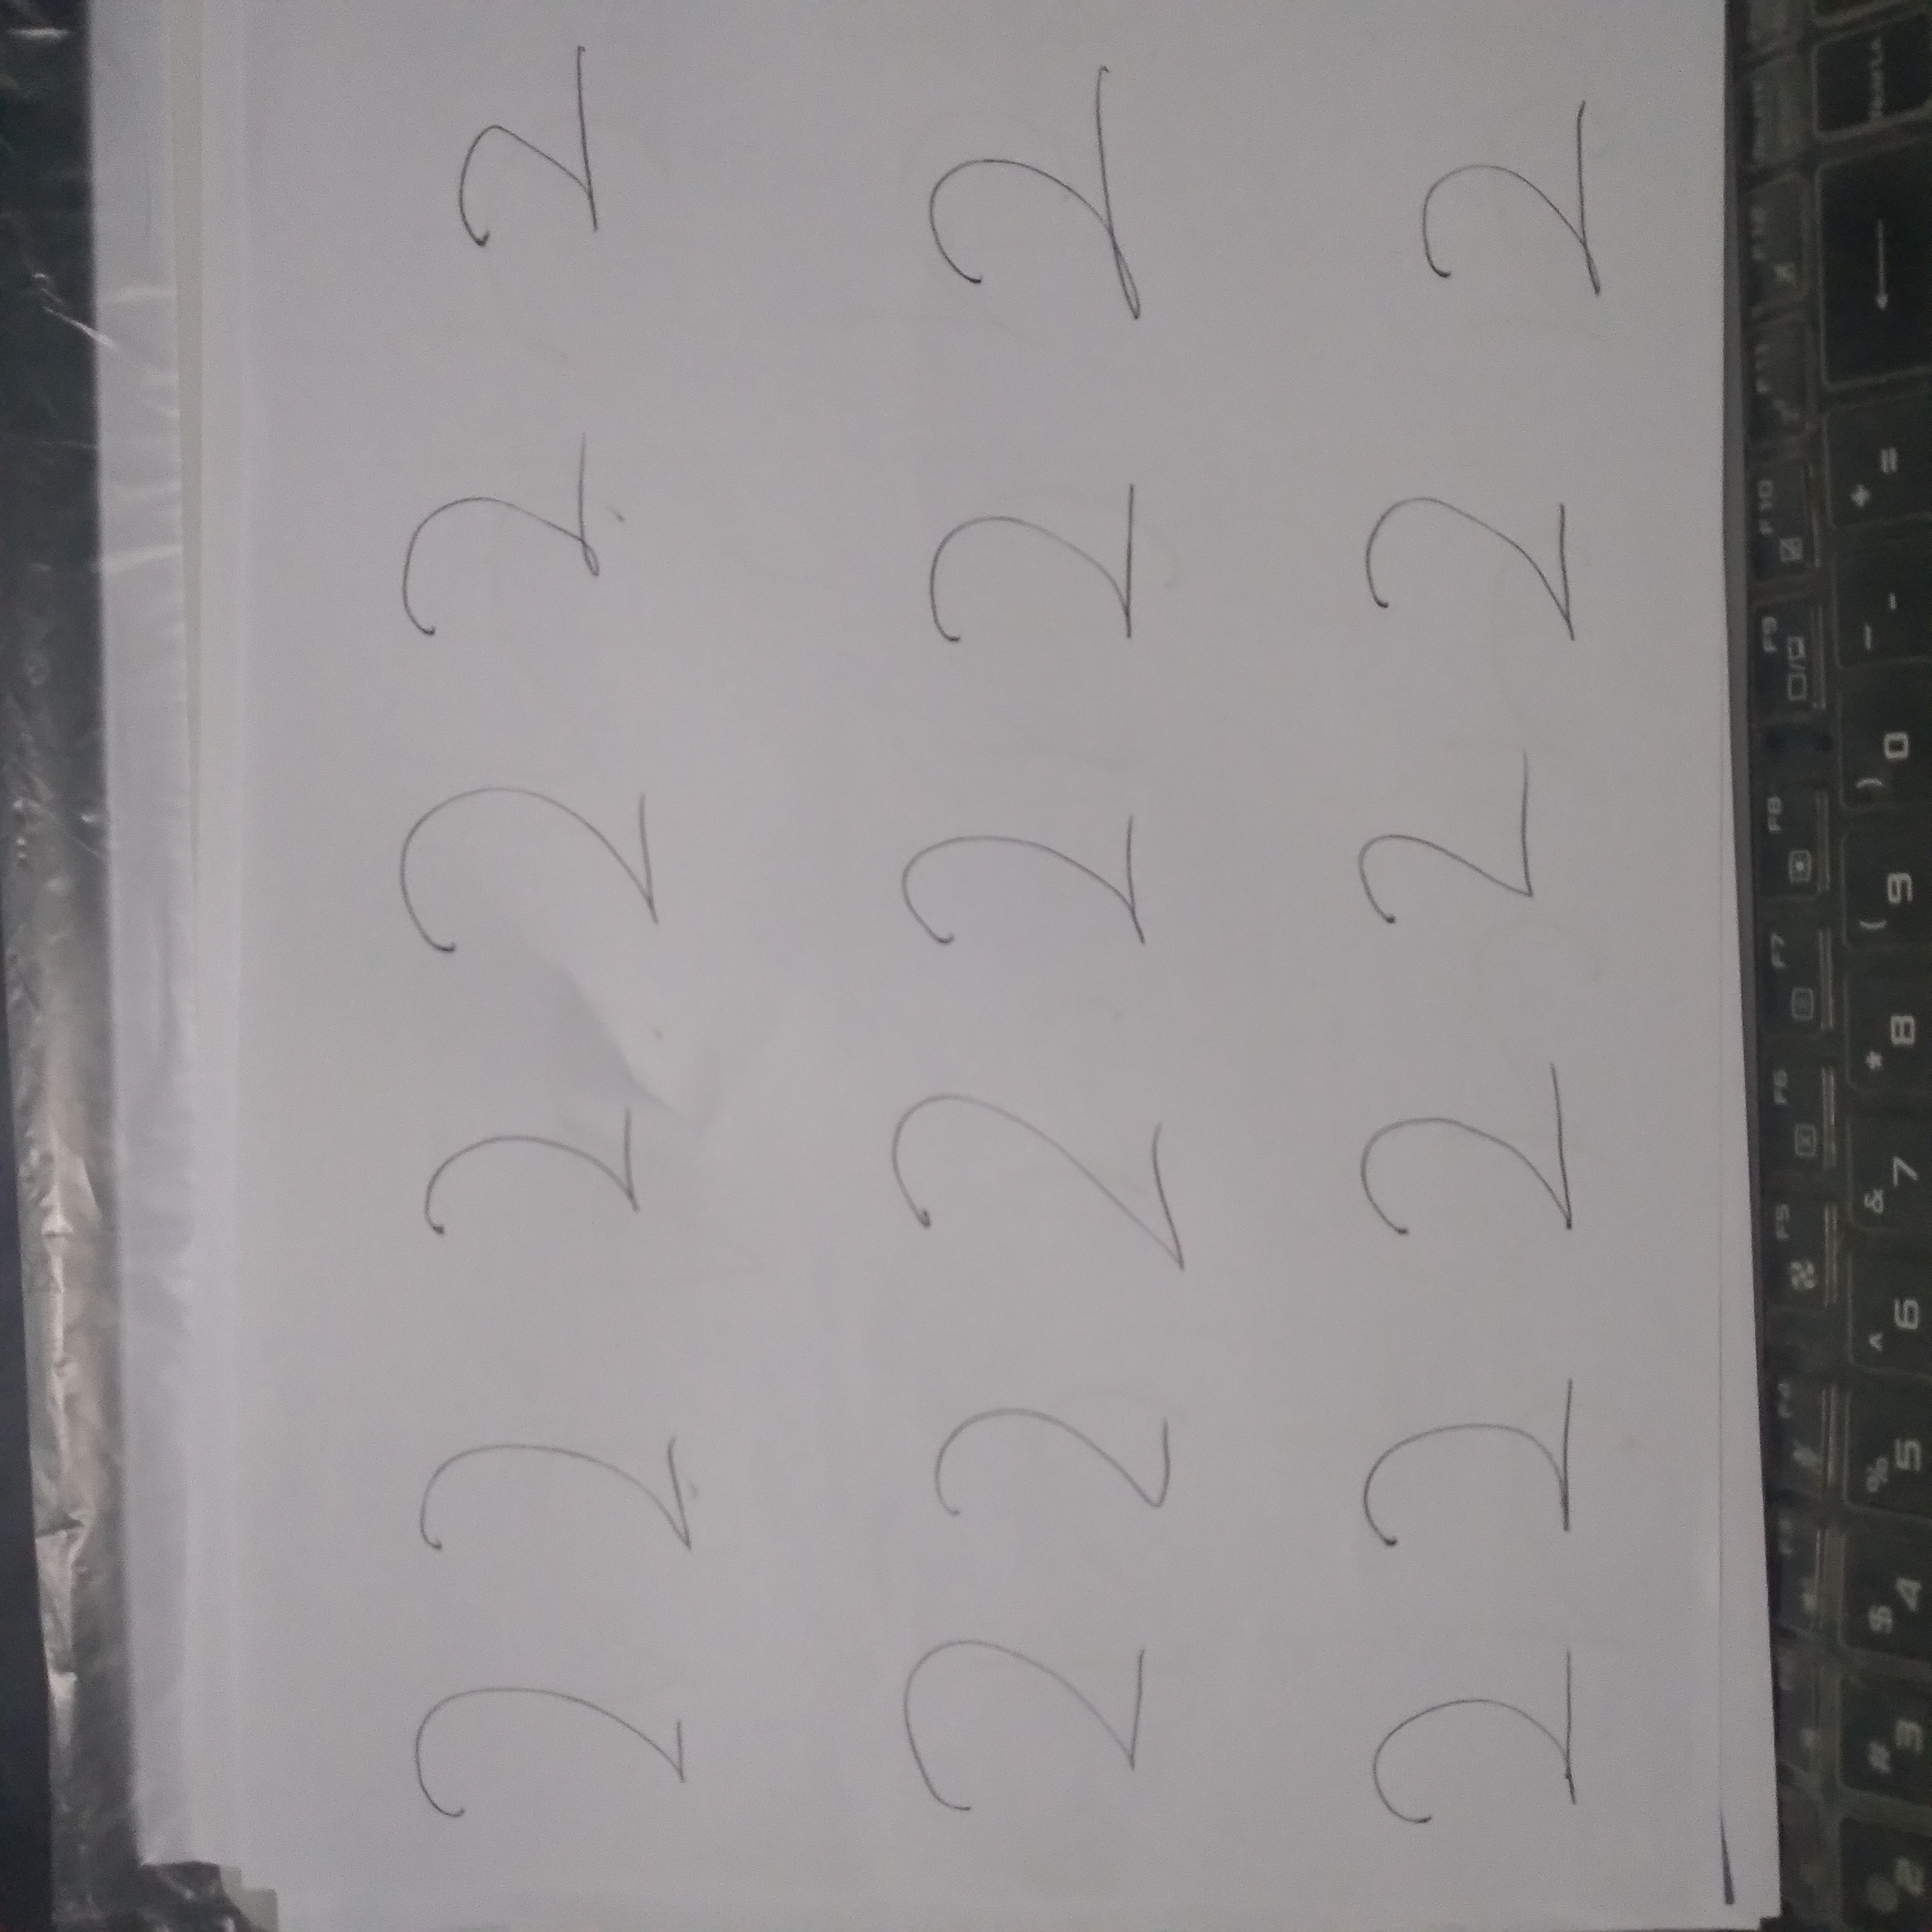 2 2 2 2 2 2
2 2 2 2 2 2
2 2 2 2 2 2
F4 F5 F6 F7 F8 F9 F10 F11 F12 DELETE
2 # 3 $ 4 % 5 ^ 6 & 7 * 8 ( 9 ) 0 - - + =